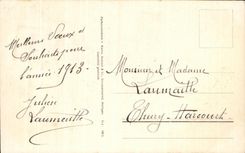 Meilleurs Vœux et
Souhaits pour
l'année 1913.
Julien
Laumaille
Monsieur et Madame
Laumaille
Thury-Harcourt